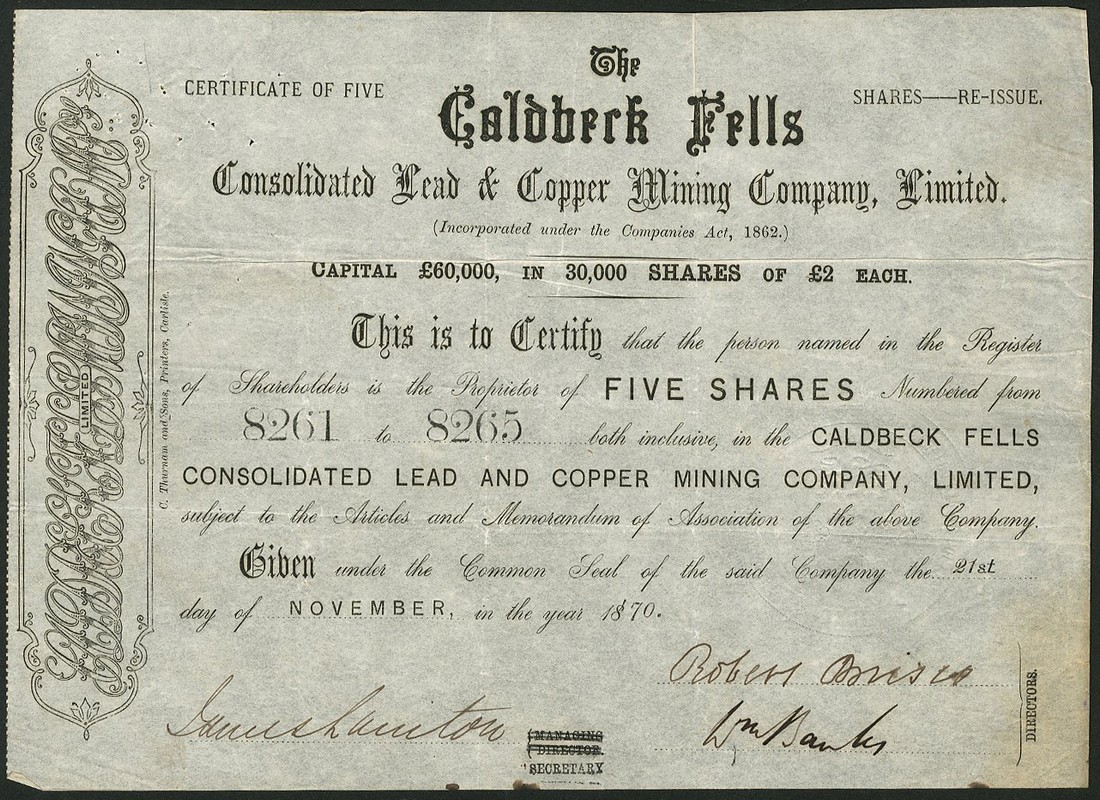 The
CERTIFICATE OF FIVE
SHARES——RE-ISSUE.
Caldbeck Fells
Consolidated Lead & Copper Mining Company, Limited.
(Incorporated under the Companies Act, 1862.)
CAPITAL £60,000, IN 30,000 SHARES OF £2 EACH.
This is to Certify that the person named in the Register
of Shareholders is the Proprietor of FIVE SHARES Numbered from
8261 to 8265 both inclusive, in the CALDBECK FELLS
CONSOLIDATED LEAD AND COPPER MINING COMPANY, LIMITED,
subject to the Articles and Memorandum of Association of the above Company.
Given under the Common Seal of the said Company the 21st
day of NOVEMBER, in the year 1870.
Robert
James
Wm Banks
MANAGING
DIRECTOR.
SECRETARY
DIRECTORS.
LIMITED
C. Thurnam and Sons, Printers, Carlisle.